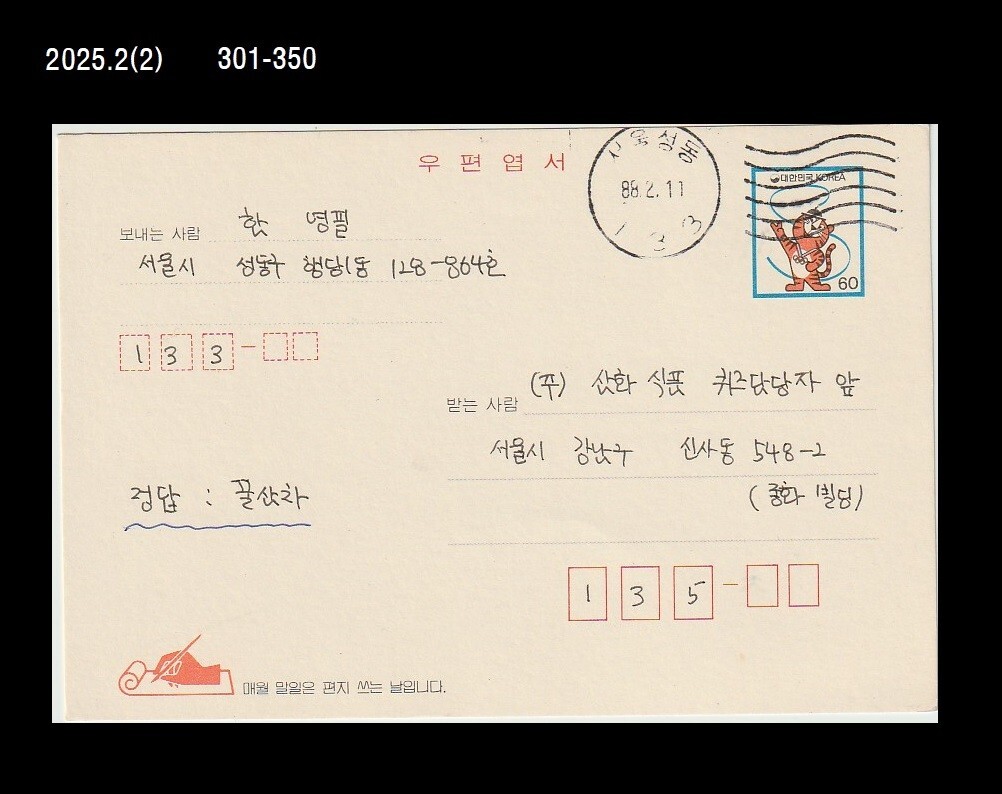 2025.2(2) 301-350
우편엽서
서울성동
88.2.11
133
대한민국 KOREA
60
보내는 사람 한 영필
서울시 성동구 행당1동 128-864호
133-
받는 사람 (주) 산화 식품 퀴즈담당자 앞
서울시 강남구 신사동 548-2
(중화 빌딩)
정답 : 꿀산차
135-
매월 말일은 편지 쓰는 날입니다.